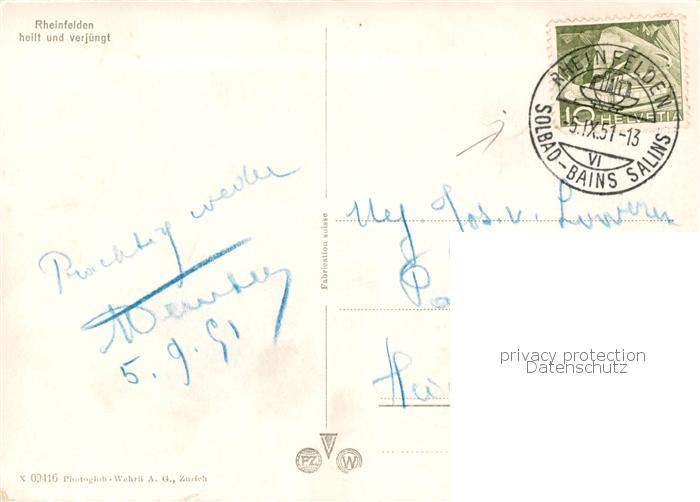 Rheinfelden
heilt und verjüngt
RHEINFELDEN
10 HELVETIA
-5.IX.51-13
VI
SOLBAD-BAINS SALINS
Prachtig weder
5.9.51
Fabrication suisse
Mej. Jos. v.
privacy protection
Datenschutz
PZ W
X 09416 Photoglob-Wehrli A. G., Zürich